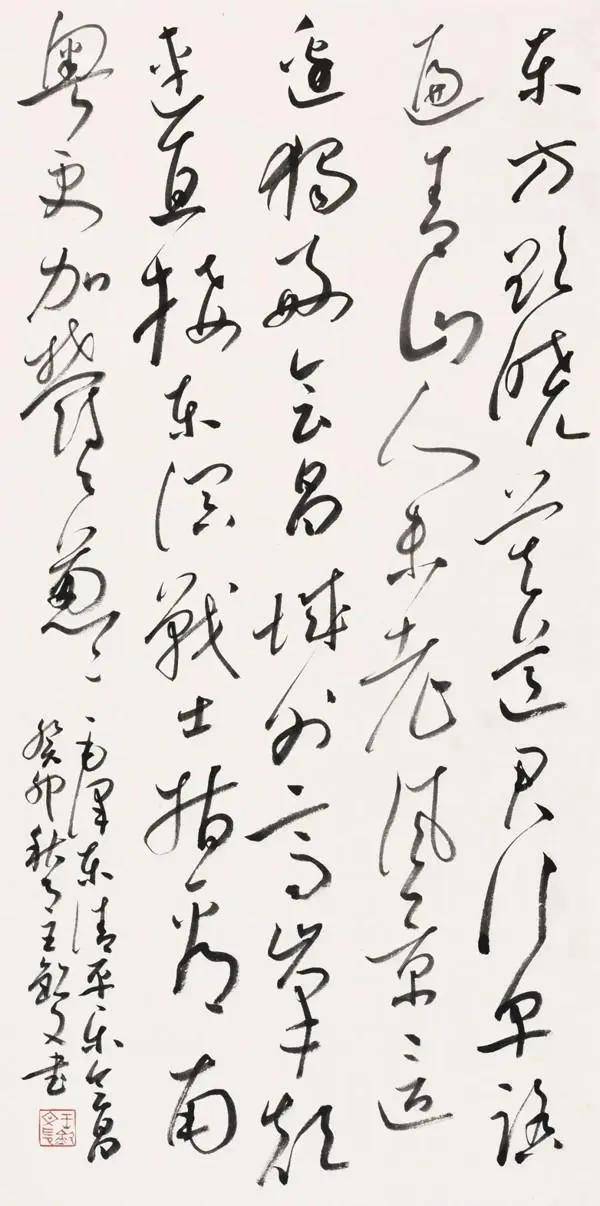 东方欲晓莫道君行早踏
遍青山人未老风景这
边独好会昌城外高峰颠
连直接东溟戰士指看南
粤更加鬱々葱々
毛泽东清平乐会昌
癸卯秋月王钦文书